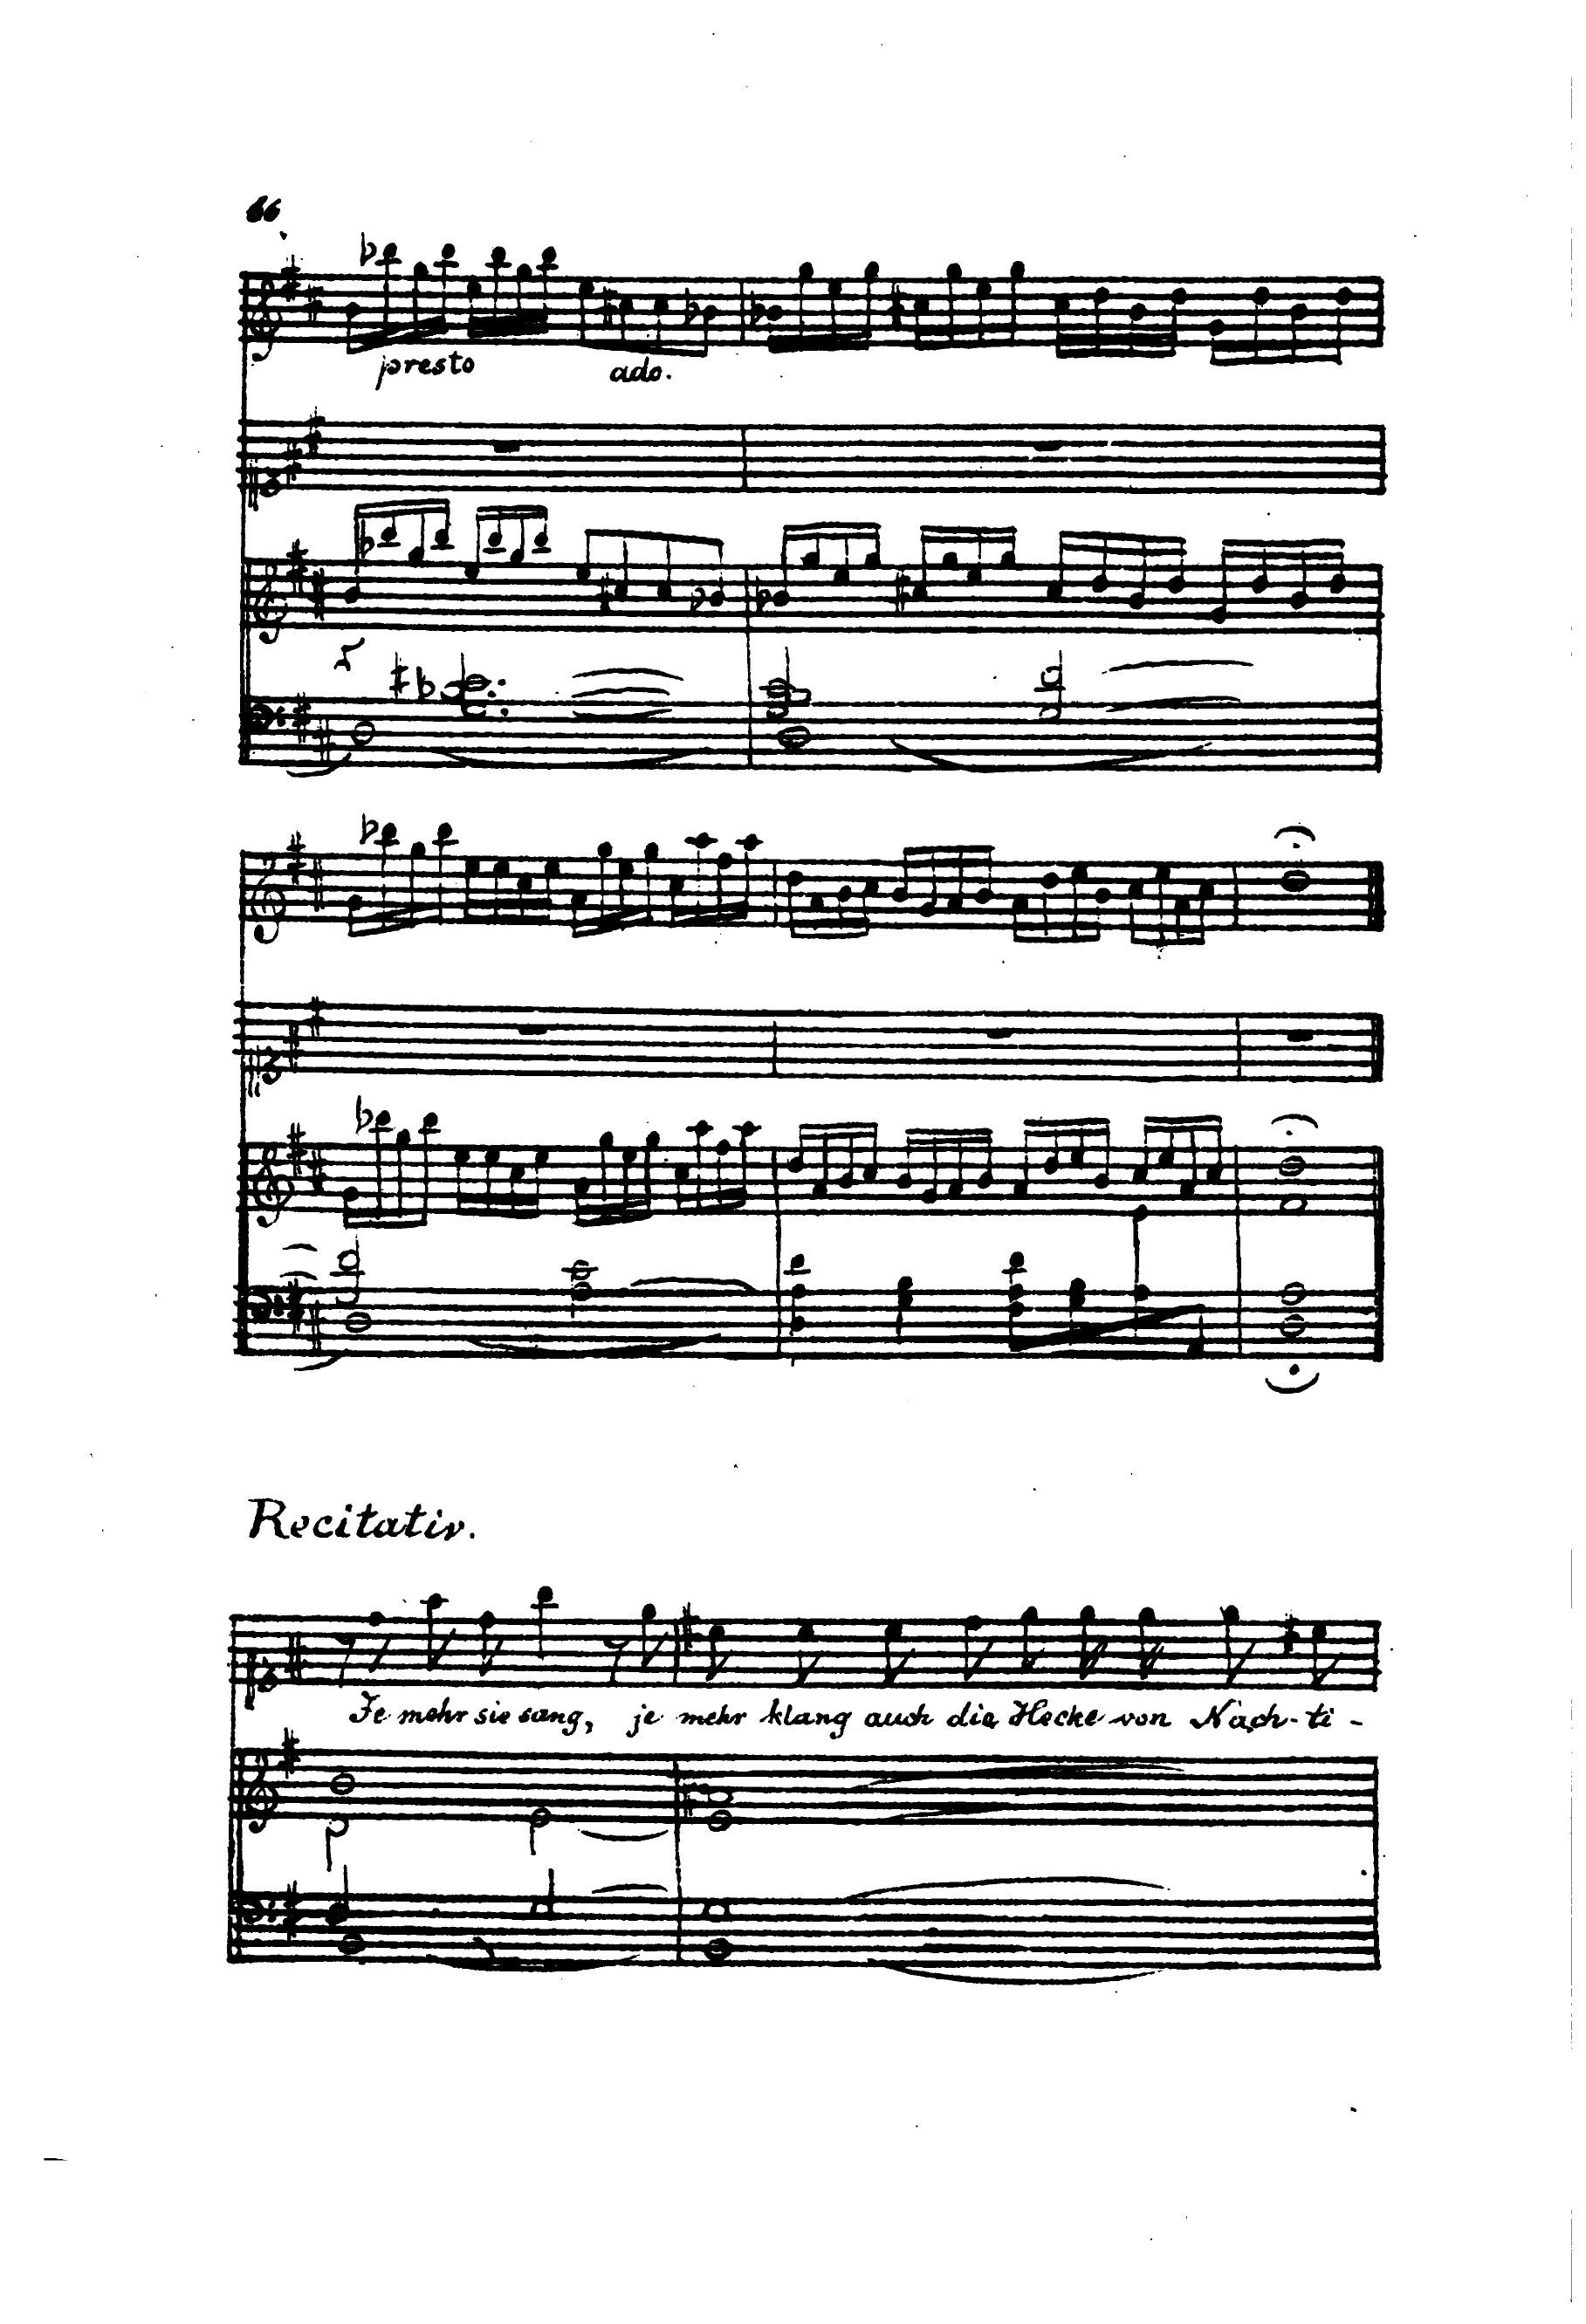 66
presto ado.
Recitativ.
Je mehr sie sang, je mehr klang auch die Hecke von Nach-ti-